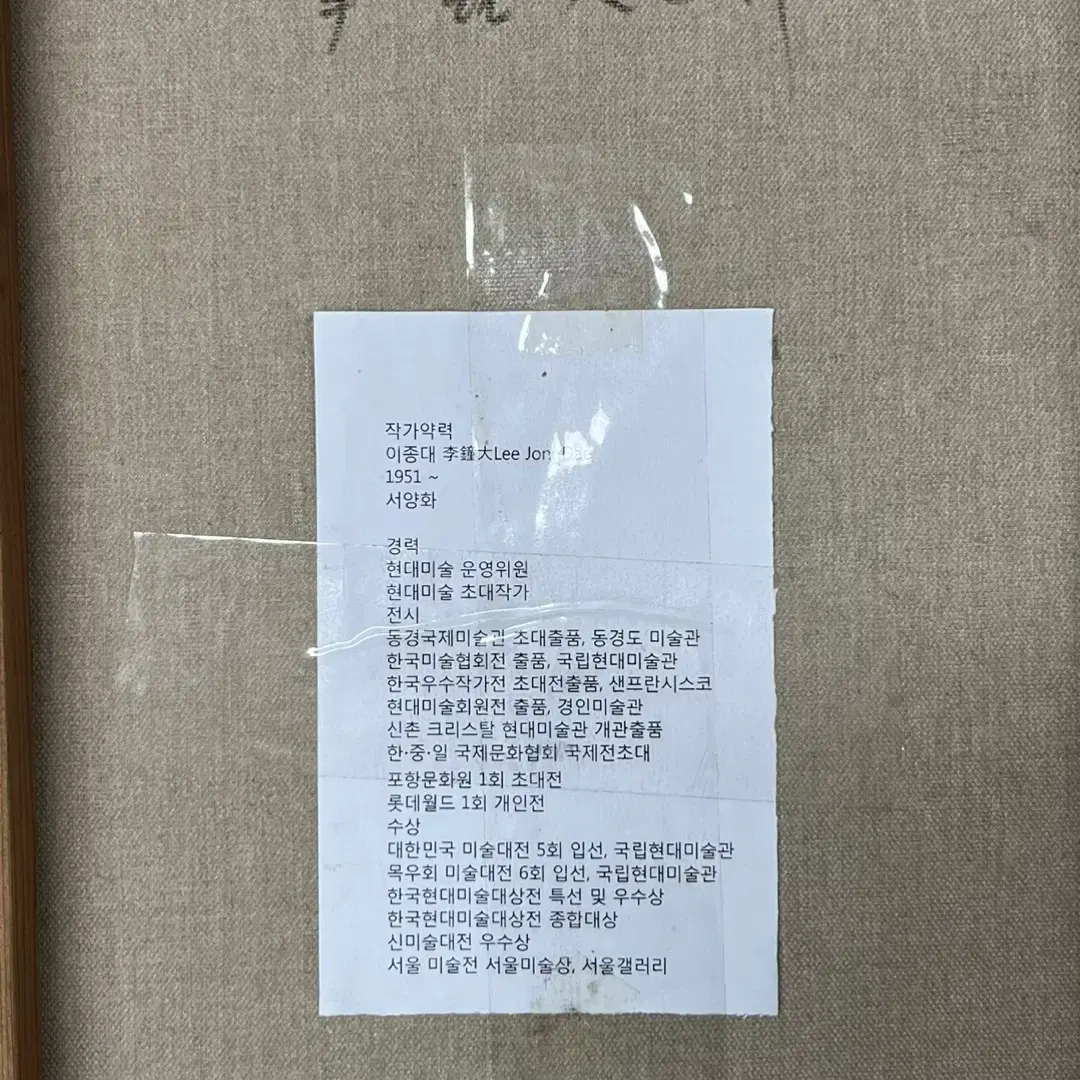 작가약력
이종대 李鐘大Lee Jon Dae
1951 ~
서양화
경력
현대미술 운영위원
현대미술 초대작가
전시
동경국제미술관 초대출품, 동경도 미술관
한국미술협회전 출품, 국립현대미술관
한국우수작가전 초대전출품, 샌프란시스코
현대미술회원전 출품, 경인미술관
신촌 크리스탈 현대미술관 개관출품
한·중·일 국제문화협회 국제전초대
포항문화원 1회 초대전
롯데월드 1회 개인전
수상
대한민국 미술대전 5회 입선, 국립현대미술관
목우회 미술대전 6회 입선, 국립현대미술관
한국현대미술대상전 특선 및 우수상
한국현대미술대상전 종합대상
신미술대전 우수상
서울 미술전 서울미술상, 서울갤러리